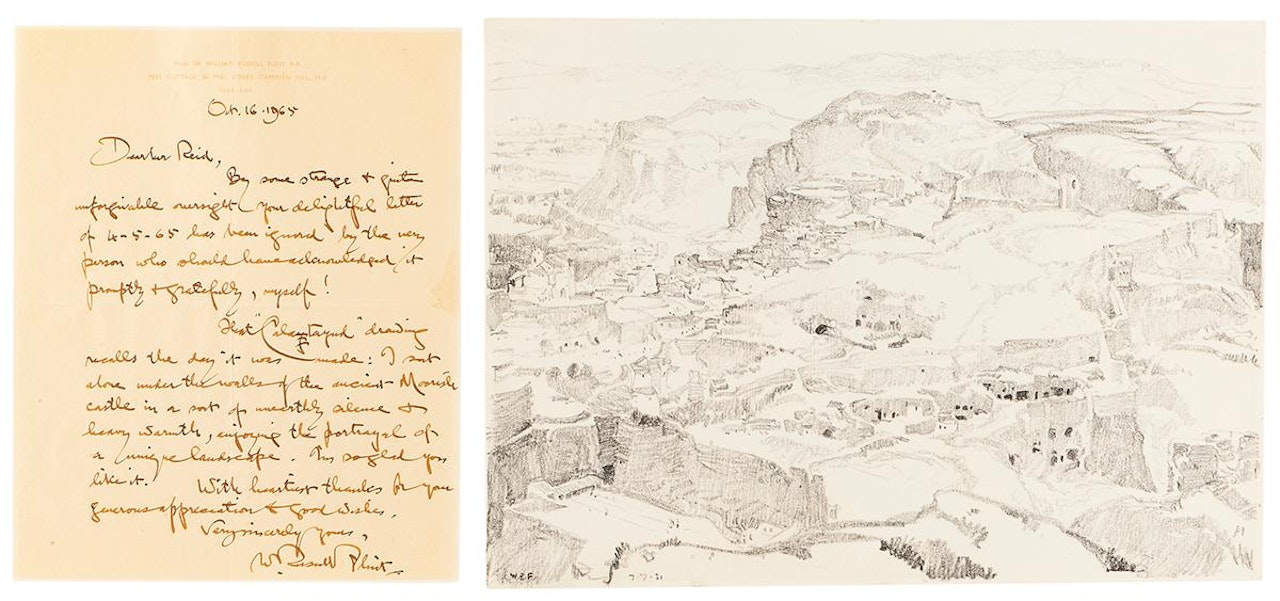 FROM SIR WILLIAM RUSSELL FLINT R.A.
PEEL COTTAGE, 80 PEEL STREET, CAMPDEN HILL, W.8
Oct. 16. 1965
Dear Mr Reid,
By some strange & quite
unforgivable oversight your delightful letter
of 4-5-65 has been ignored by the very
person who should have acknowledged it
promptly & gratefully, myself!
That "Calatayud" drawing
recalls the day it was made: I sat
alone under the walls of the ancient Moorish
castle in a sort of unearthly silence &
heavy warmth, enjoying the portrayal of
a unique landscape. I'm so glad you
like it. With heartiest thanks for your
generous appreciation & good wishes,
Very sincerely yours,
W. Russell Flint
W.R.F. 7-7-21